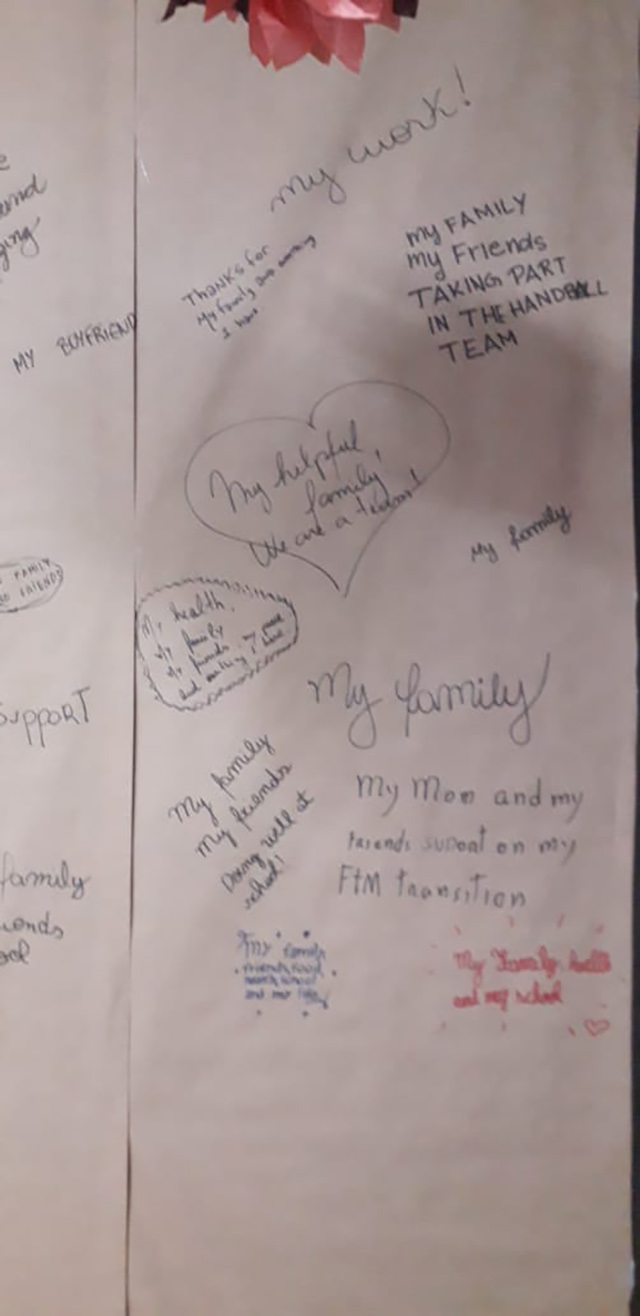 my work!
and
ging
Thanks for
My family and
I have
my FAMILY
my Friends
TAKING PART
IN THE HANDBALL
TEAM
MY BOYFRIEND
My helpful
family,
We are a team!
My family
FAMILY
FRIENDS
My health,
My family
My friends
and
I have
My family
SUPPORT
My family
My friends
Doing well at
school!
My Mom and my
on my
FtM transition
family
iends
ool
My family
friends, food
school
and my life
My Family, health
and my school